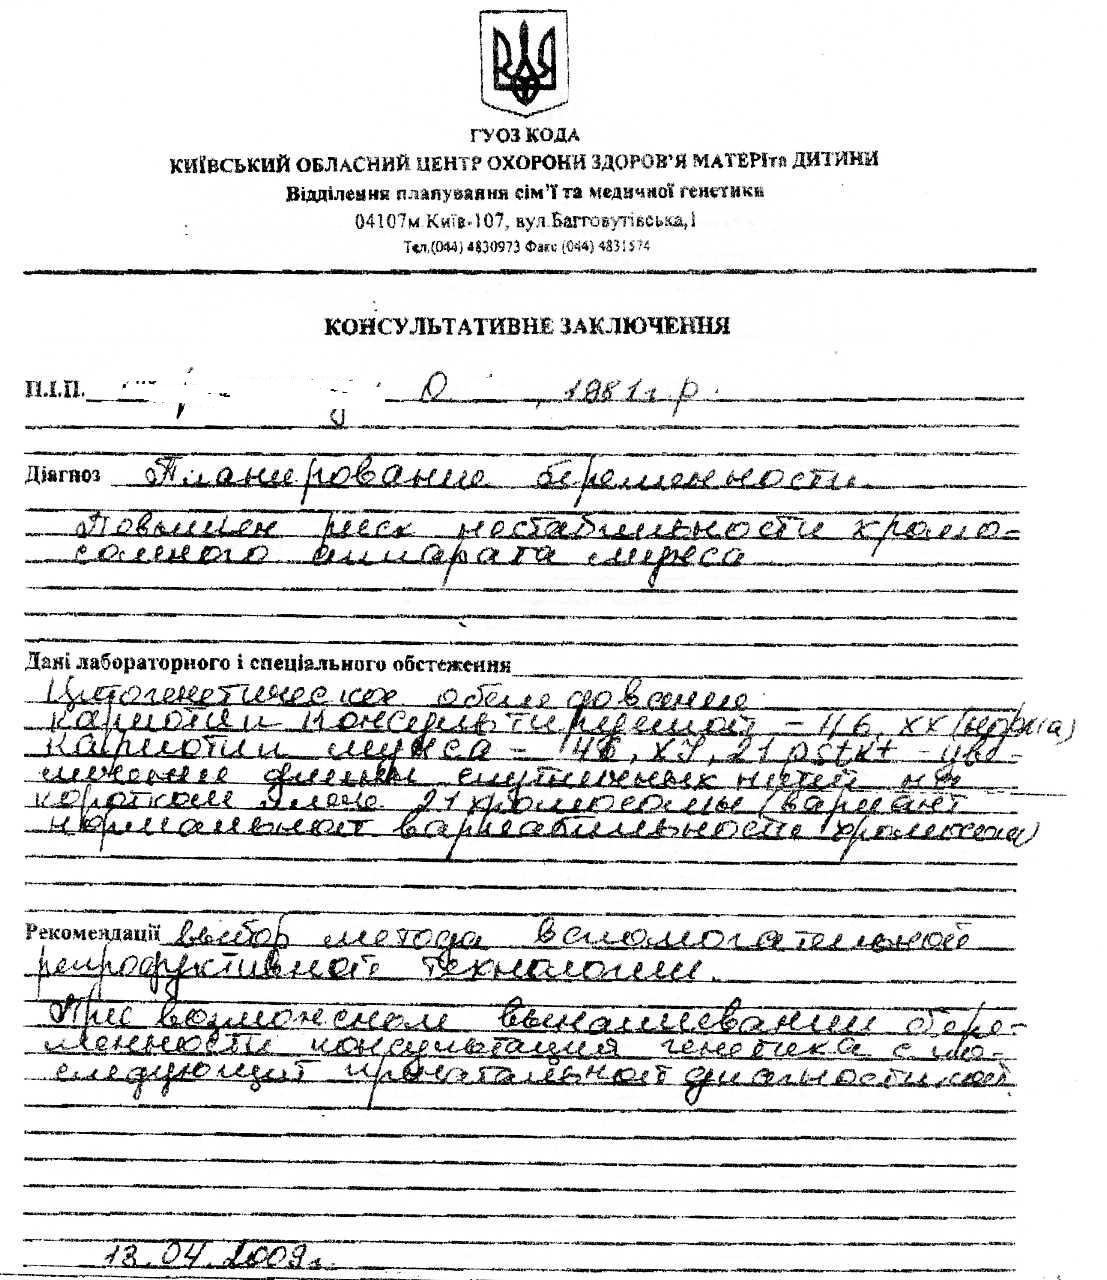 ГУОЗ КОДА
КИЇВСЬКИЙ ОБЛАСНИЙ ЦЕНТР ОХОРОНИ ЗДОРОВ'Я МАТЕРІ та ДИТИНИ
Відділення планування сім'ї та медичної генетики
04107м.Київ-107, вул.Багговутівська,1
Тел.(044) 4830973 Факс (044) 4831574
КОНСУЛЬТАТИВНЕ ЗАКЛЮЧЕННЯ
П.І.П. О , 1981г.р.
Діагноз Планирование беременности.
Повышен риск нестабильности хромо-
сомного аппарата мужа
Дані лабораторного і спеціального обстеження
Цитогенетическое обследование
кариотип консультируемой – 46, ХХ (норма)
кариотип мужа – 46, ХУ, 21pstk+ – уве-
личение длины спутничных нитей на
коротком плече 21 хромосомы (вариант
нормальной вариабильности хромосом)
Рекомендації выбор метода вспомогательной
репродуктивной технологии.
При возможном вынашивании бере-
менности консультация генетика с по-
следующей пренатальной диагностикой
13.04.2009г.